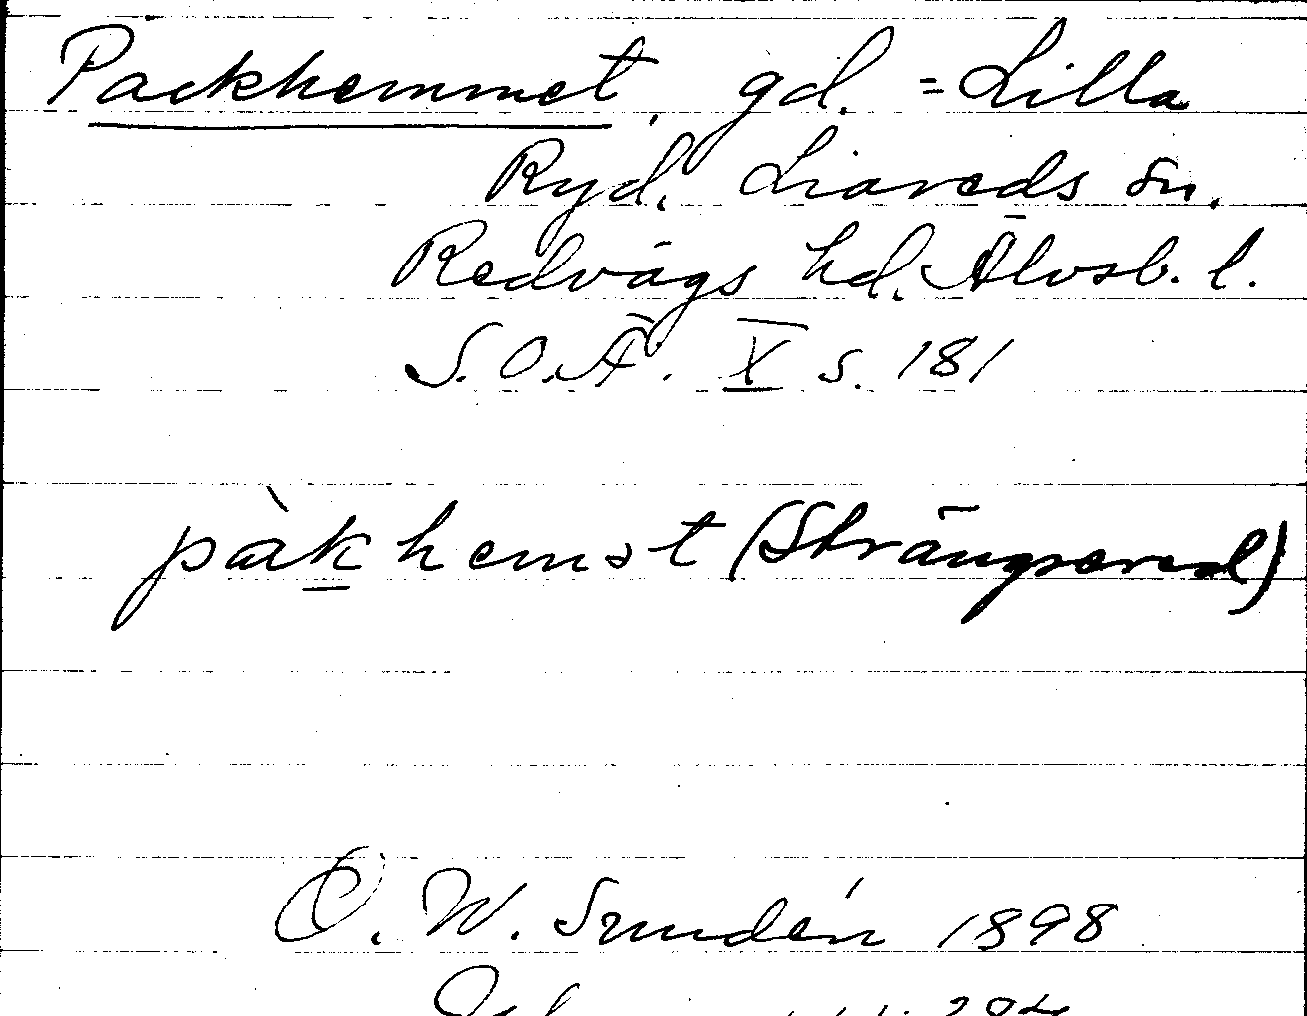 Packhemmet, gd. = Lilla
Ryd. Liareds sn.
Redvägs hd. Älvsb. l.
S.O.Ä. X s. 181
pàkhemət (Strängsered)
O. W. Sundén 1898